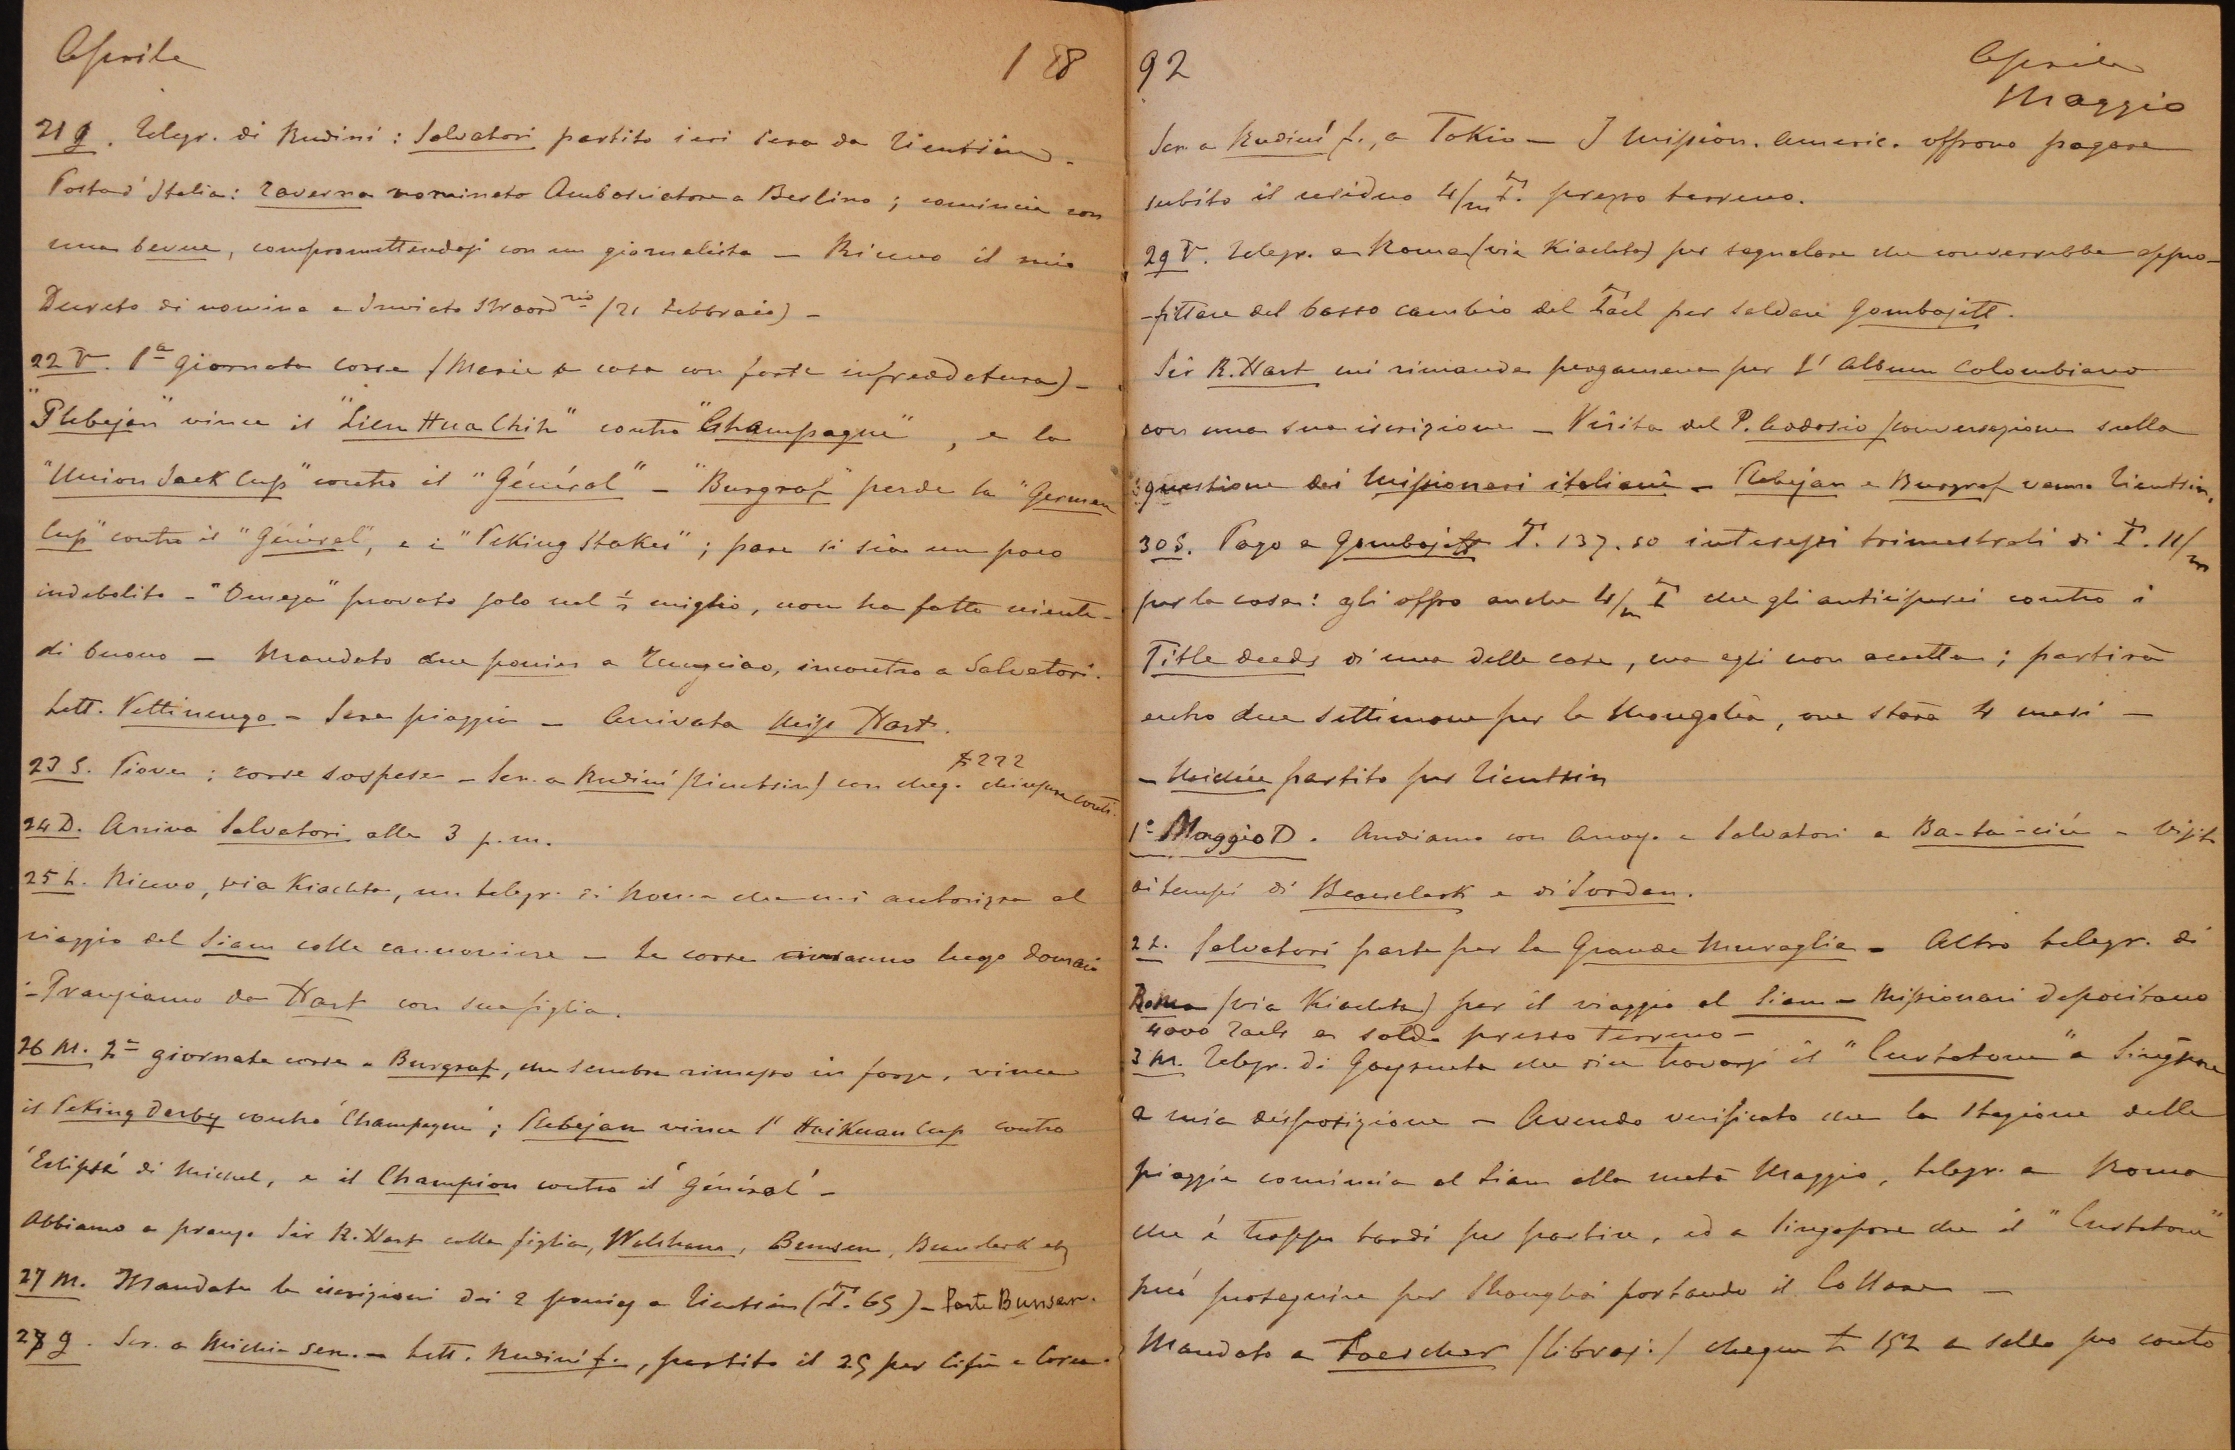 Aprile 18
21 G. Telegr. di Rudinì : Salvatori partito ieri sera da Tientsin -
Posta d'Italia: Taverna nominato Ambasciatore a Berlino ; comincia con
una bevue, compromettendosi con un giornalista - Ricevo il mio
Decreto di nomina a Inviato Straord.rio (21 Febbraio) -
22 V. 1a Giornata corse (Maria a casa con forte infreddatura) -
"Plebejan" vince il "Lien Hua Chih" contro "Champagne", e la
"Union Jack Cup" contro il "Général" - "Burgraf" perde la "German
Cup" contro il "Général", e i "Peking Stakes" ; pare si sia un poco
indebolito - "Omega" provato solo nel ½ miglio, non ha fatto niente
di buono - Mandato due ponies a Tungciao, incontro a Salvatori.
Lett. Pettinengo - Sera pioggia - Arrivata Miss Hart.
23 S. Piove ; corse sospese - Scr. a Rudinì (Tientsin) con cheq. $ 222 chiusura conti.
24 D. Arriva Salvatori alle 3 p.m.
25 L. Ricevo, via Kiachta, un telegr. di Roma che mi autorizza al
viaggio del Siam colle cannoniere - Le corse avranno luogo domani
- Pranziamo da Hart con sua figlia.
26 M. 2a giornata corse - Burgraf, che sembra rimesso in forze, vince
il Peking Derby contro 'Champagne' ; Plebejan vince l' Haikuan Cup contro
'Eclipse' di Michel, e il Champion contro il 'Général' -
Abbiamo a pranzo Sir R. Hart colla figlia, Walsham, Bunsen, Beauclerk etc
27 M. Mandate le iscrizioni dei 2 ponies a Tientsin (T. 65) - Parte Bunsen.
28 G. Scr. a Michie sen. - Lett. Rudinì f., partito il 25 per Cifù e Corea.
92 Aprile
Maggio
Scr. a Rudinì f., a Tokio - I mission. americ. offrono pagare
subito il residuo 4/m T. prezzo terreno.
29 V. Telegr. a Roma (via Kiachta) per segnalare che converrebbe appro-
-fittare del basso cambio del Tael per saldare Gombojeff.
Sir R. Hart mi rimanda pergamena per l' Album Colombiano
con una sua iscrizione - Visita del P. Teodosio (conversazione sulla
questione dei Missionari italiani - Plebejan e Burgraf vanno Tientsin.
30 S. Pago a Gombojeff T. 137.50 interessi trimestrali di T. 11/m
per la casa : gli offro anche 4/m T che gli anticiperei contro i
Title deeds di una delle case, ma egli non accetta ; partirà
entro due settimane per la Mongolia, ove starà 4 mesi -
- Michie partito per Tientsin
1° Maggio D. Andiamo con a Salvatori a Ba-ta-ciù - Visita
ai tempi di Beauclerk e di Jordan.
2 L. Salvatori parte per la Grande Muraglia - Altro telegr. di
Roma (via Kiachta) per il viaggio al Siam - Missionari depositano
4000 Taels a saldo prezzo terreno -
3 M. Telegr. di che dice trovarsi il "Curtatone" a Singapore
a mia disposizione - Avendo verificato che la stagione delle
pioggie comincia al Siam alla metà Maggio, telegr. a Roma
che è troppo tardi per partire, ed a Singapore che il "Curtatone"
può proseguire per Shanghai portando il Collare -
Mandato a Loescher (libraj:) cheque £ 152 a saldo suo conto